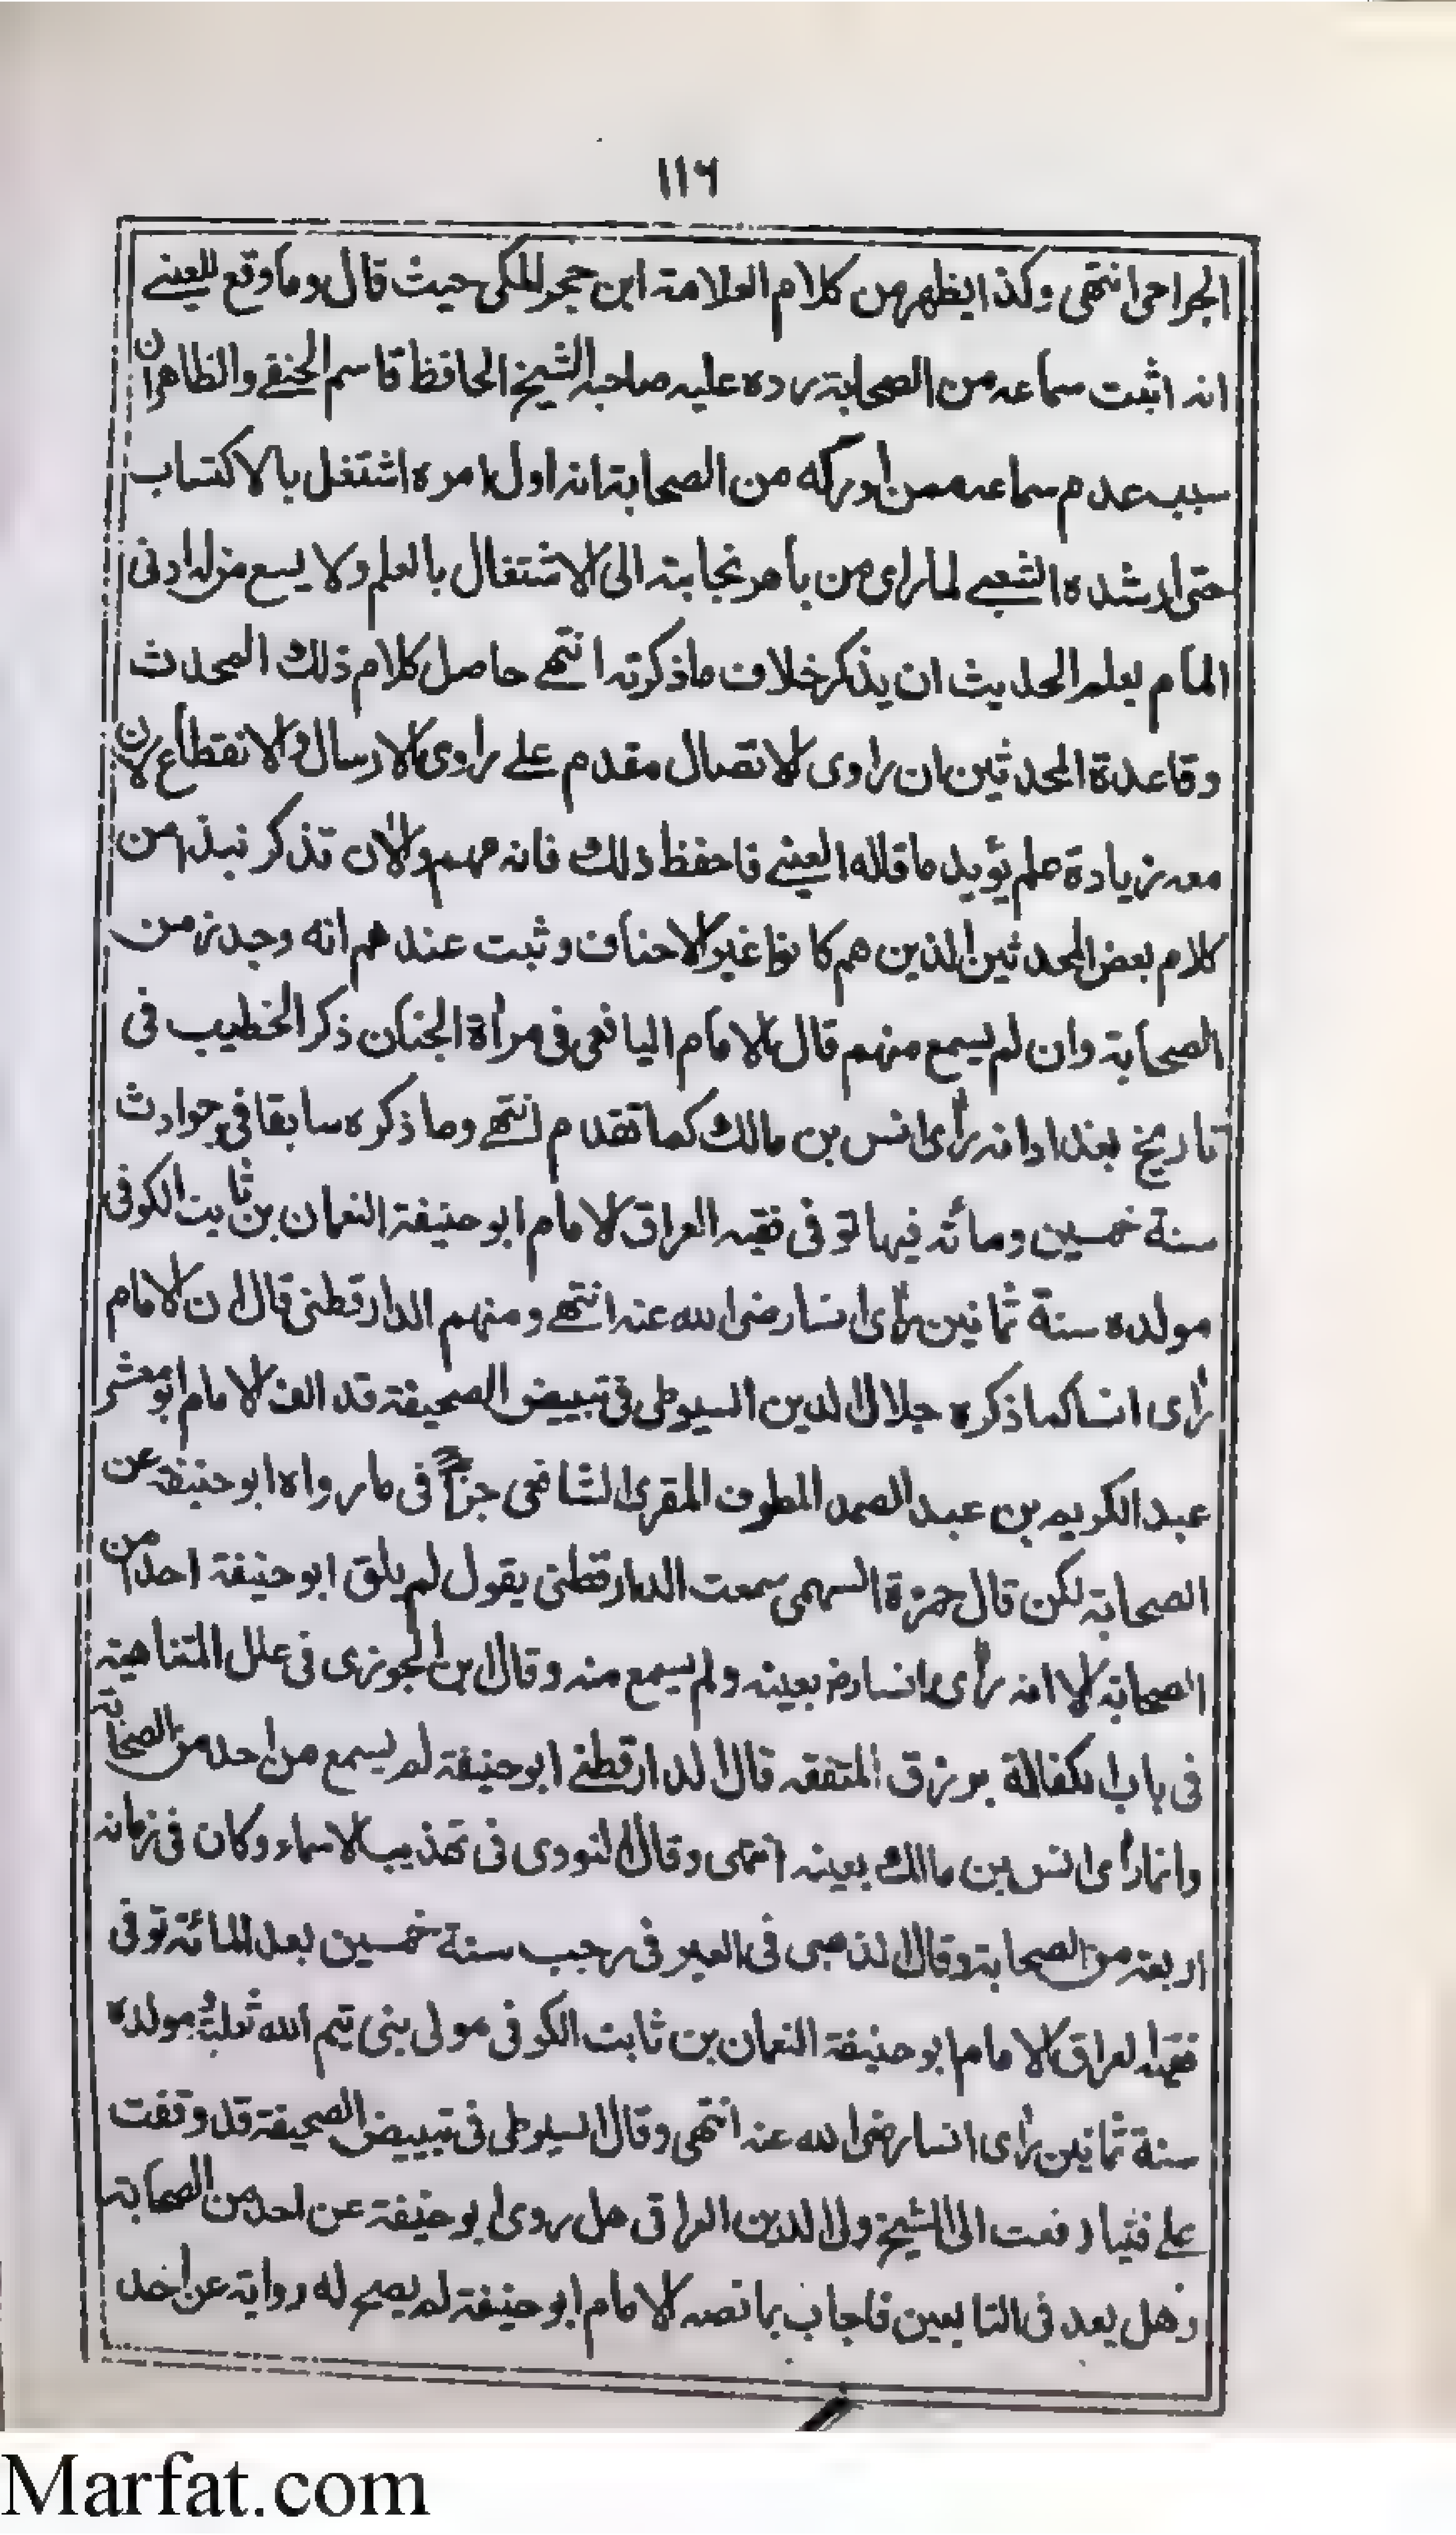 ١١٦
الجراحى انتهى وكذا يظهر من كلام العلامة ابن حجر المكى حيث قال وما وقع للعينے
انه اثبت سماعه من الصحابة رده عليه صاحبه الشيخ الحافظ قاسم الحنفے والظاهر ان
سبب عدم سماعه ممن ادركه من الصحابة انه اول امره اشتغل بالاكتساب
حتى ارشده الشعبے لما راى من باهر نجابته الى الاشتغال بالعلم ولا يسع من له ادنى
المام بعلم الحديث ان يذكر خلاف ما ذكرته انتهے حاصل كلام ذلك المحدث
وقاعدة المحدثين ان راوى الاتصال مقدم علے راوى الارسال والانقطاع لان
معه زيادة علم يؤيد ما قاله العينے فاحفظ ذلك فانه مهم والان تذكر نبذا من
كلام بعض المحدثين الذين هم كانوا غير الاحناف وثبت عندهم انه وجد زمن
الصحابة وان لم يسمع منهم قال الامام اليافعى فى مرأة الجنان ذكر الخطيب فى
تاريخ بغداد انه رأى انس بن مالك كما تقدم انتهے وما ذكره سابقا فى حوادث
سنة خمسين ومائه فيها توفى فقيه العراق الامام ابو حنيفة النعمان بن ثابت الكوفى
مولده سنة ثمانين رأى انسا رضى الله عنه انتهے ومنهم الدارقطنى قال ان الامام
رأى انسا كما ذكره جلال الدين السيوطى فى تبييض الصحيفة قد الف الامام ابو معشر
عبد الكريم بن عبد الصمد المطوف المقرى الشافعى جزأً فى ما رواه ابو حنيفة عن
الصحابة لكن قال حمزة السهمى سمعت الدارقطنى يقول لم يلق ابو حنيفة احدا من
الصحابة الا انه رأى انسا رض بعينه ولم يسمع منه وقال ابن الجوزى فى علل المتناهية
فى باب الكفالة برزق المتفقه قال الدارقطنے ابو حنيفة لم يسمع من احد من الصحابة
وانما رأى انس بن مالك بعينه انتهى وقال النووى فى تهذيب الاسماء وكان فى زمانه
اربعة من الصحابة وقال الذهبى فى العبر فى رجب سنة خمسين بعد المائة توفى
فقيه العراق الامام ابو حنيفة النعمان بن ثابت الكوفى مولى بنى تيم الله ثعلبة مولده
سنة ثمانين رأى انسا رضى الله عنه انتهى وقال السيوطى فى تبييض الصحيفة قد وقفت
علے فتيا رفعت الى الشيخ ولى الدين العراقى هل روى ابو حنيفة عن احد من الصحابة
وهل يعد فى التابعين فاجاب بما نصه الامام ابو حنيفة لم يصح له رواية عن احد
Marfat.com